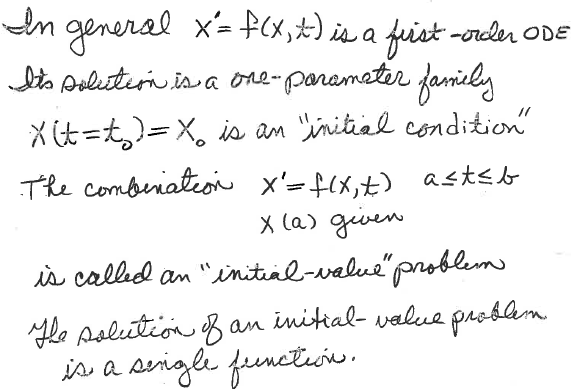 In general x' = f(x,t) is a first-order ODE
Its solution is a one-parameter family
x(t=t₀) = x₀ is an "initial condition"
The combination x' = f(x,t) a≤t≤b
x(a) given
is called an "initial-value" problem
The solution of an initial-value problem
is a single function.